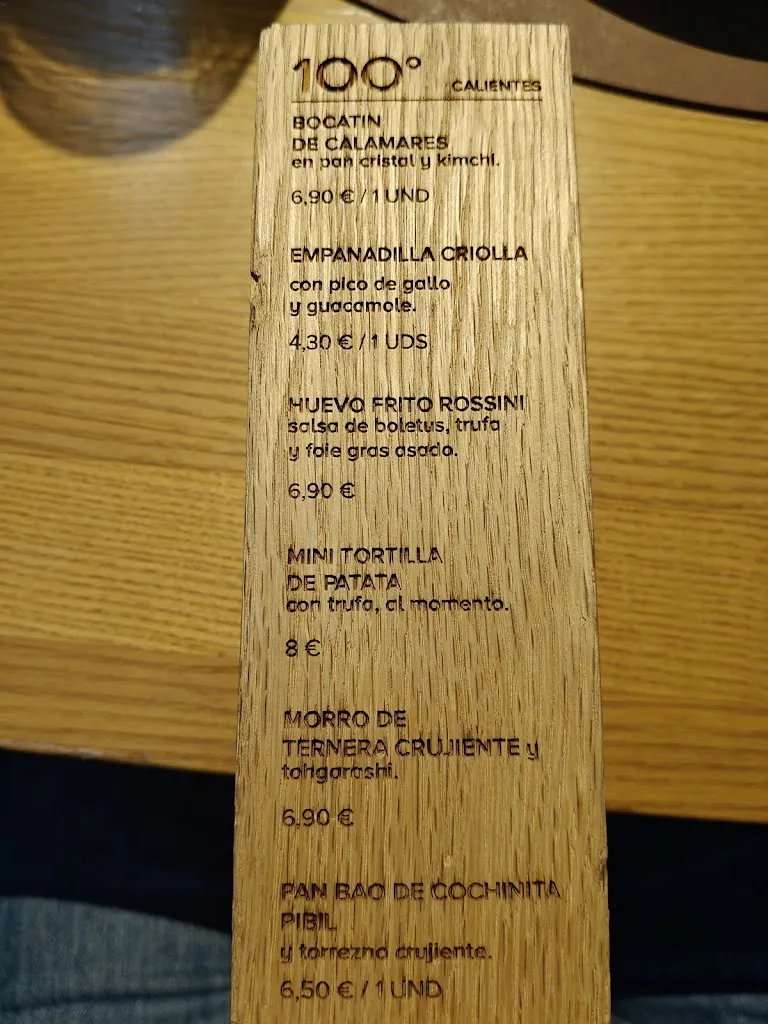 100° CALIENTES
BOCATIN
DE CALAMARES
en pan cristal y kimchi.
6,90 € / 1 UND
EMPANADILLA CRIOLLA
con pico de gallo
y guacamole.
4,30 € / 1 UDS
HUEVO FRITO ROSSINI
salsa de boletus, trufa
y foie gras asado.
6,90 €
MINI TORTILLA
DE PATATA
con trufa, al momento.
8 €
MORRO DE
TERNERA CRUJIENTE y
tohgarashi.
6,90 €
PAN BAO DE COCHINITA
PIBIL
y torrezno crujiente.
6,50 € / 1 UND